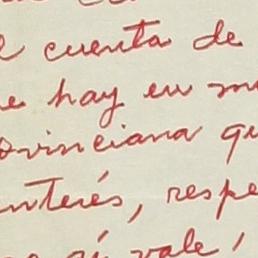 cuenta de
e hay en m
ovinciana qu
nterés, respe
sí vale,